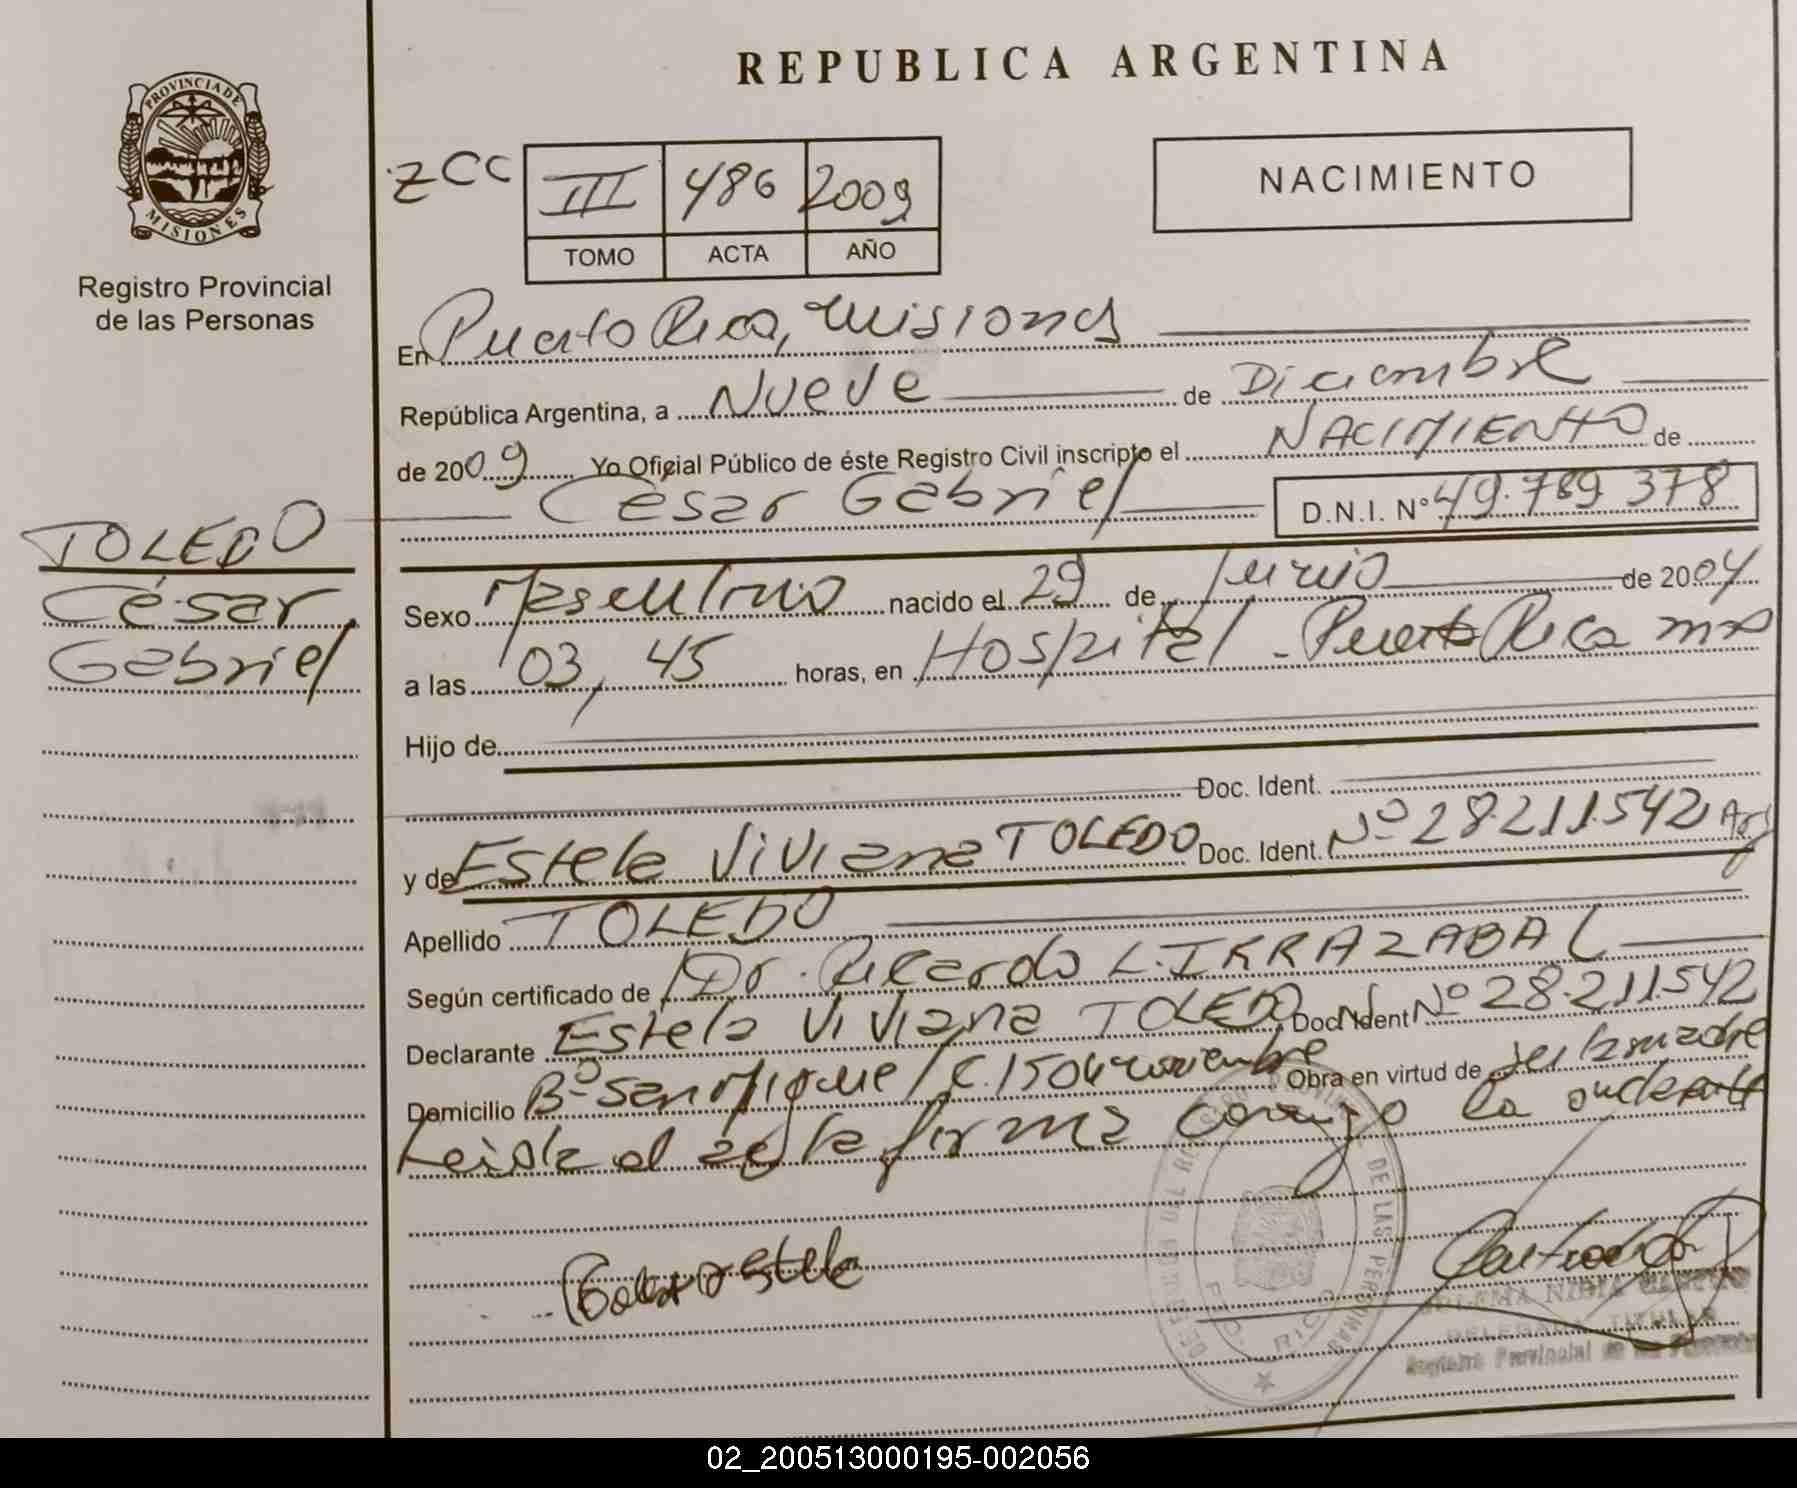 REPUBLICA ARGENTINA
PROVINCIA DE
MISIONES
Registro Provincial
de las Personas
ZCC III 486 2009
TOMO ACTA AÑO
NACIMIENTO
En Puerto Rico, Misiones
República Argentina, a Nueve de Diciembre
de 2009 Yo Oficial Público de éste Registro Civil inscripto el NACIMIENTO de
César Gabriel D.N.I. Nº 49.789 378
TOLEDO
César
Gabriel
Sexo Masculino nacido el 29 de Junio de 2004
a las 03,45 horas, en Hospital - Puerto Rico mns
Hijo de
Doc. Ident.
y de Estela Viviana TOLEDO Doc. Ident. Nº 28.211.542 Arg
Apellido TOLEDO
Según certificado de Dr. Ricardo L. IRRAZABAL
Declarante Estela Viviana TOLEDO Doc. Ident Nº 28.211.542
Domicilio Bº San Miguel / C. 150 Obra en virtud de ser la madre
Leida el acta firma conmigo la
Toledo estela
REGISTRO PROVINCIAL DE LAS PERSONAS
PTO. RICO
NIDIA
DELEGADA TITULAR
Registro Provincial de las Personas
02_200513000195-002056